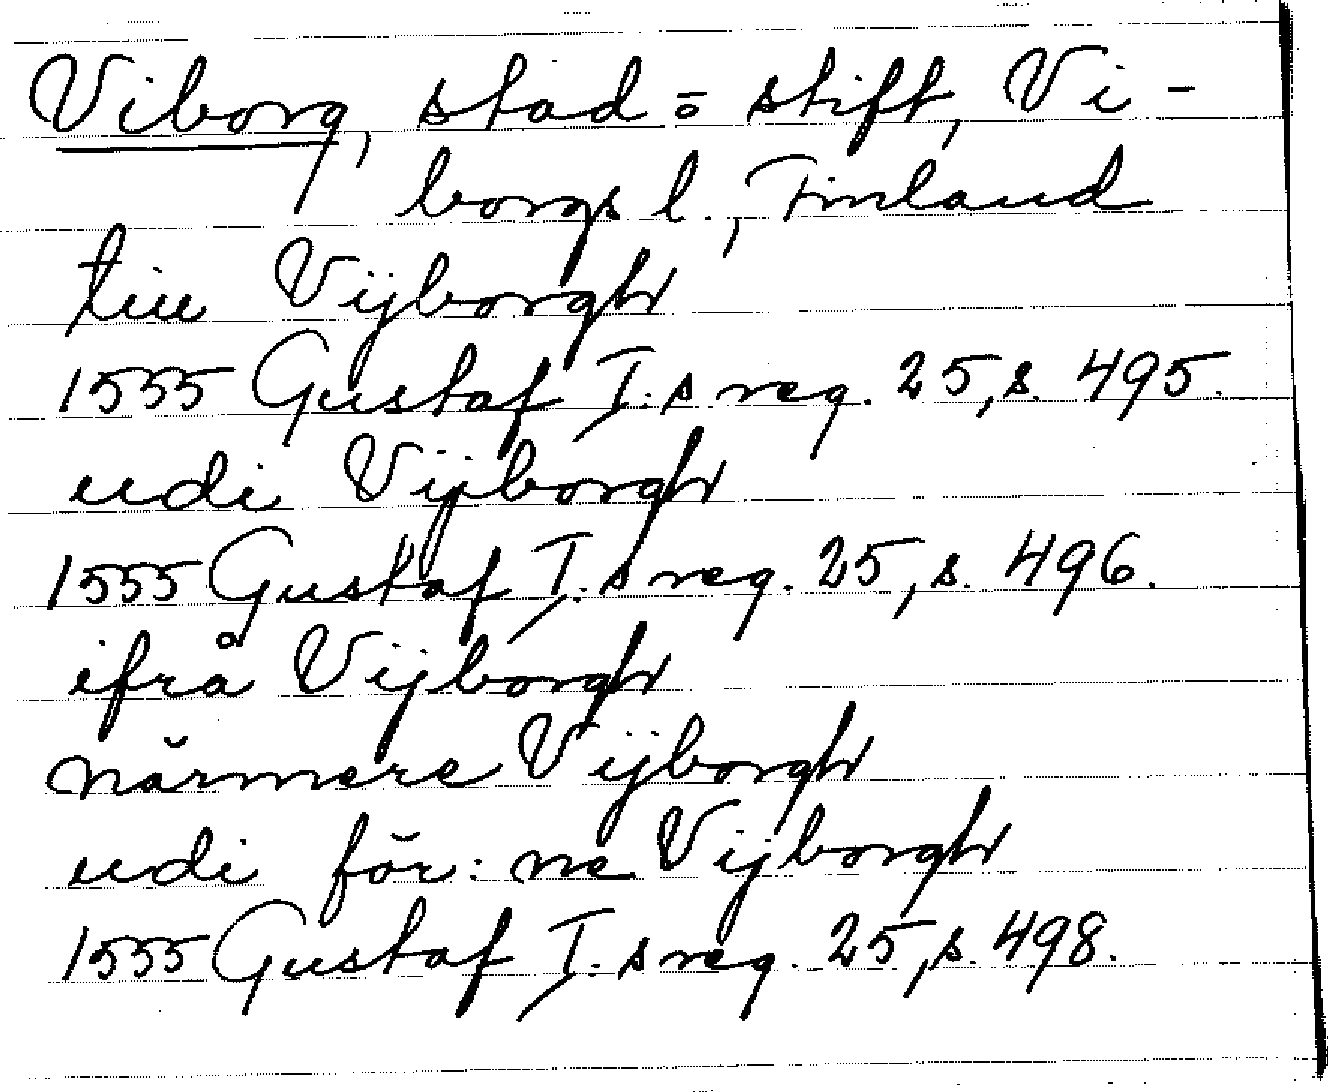 Viborg, stad o stift, Vi-
borgs l., Finland
till Vijborgh
1555 Gustaf I:s reg. 25, s. 495.
udi Vijborgh
1555 Gustaf I:s reg. 25, s. 496.
ifrå Vijborgh
närmere Vijborgh
udi för:ne Vijborgh
1555 Gustaf I:s reg. 25, s. 498.